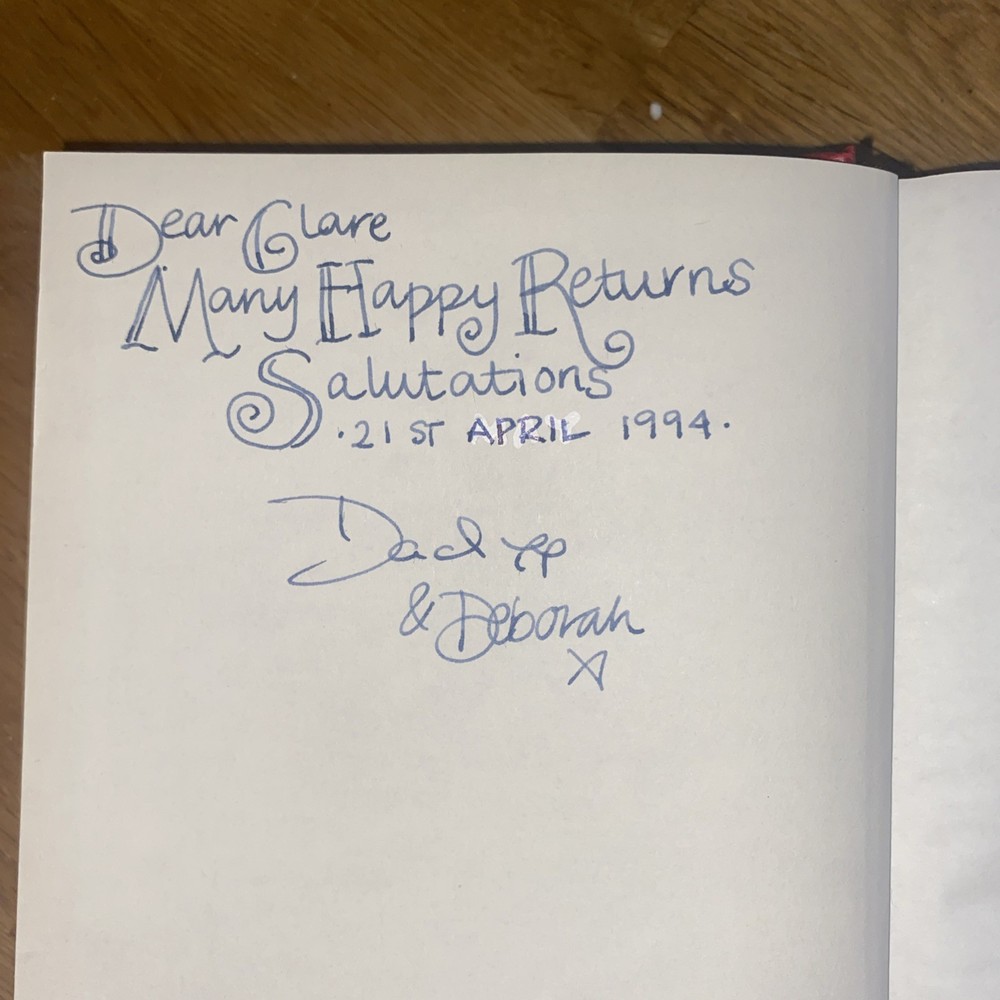 Dear Clare
Many Happy Returns
Salutations
·21ST APRIL 1994·
Dad
& Deborah
X